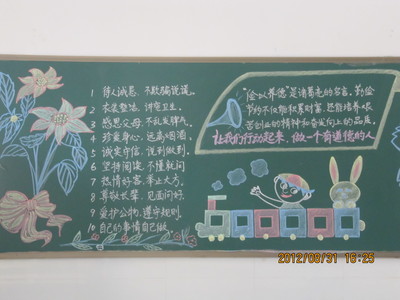 1 待人诚恳，不欺骗说谎。
2 衣装整洁，讲究卫生。
3 感恩父母，不乱发脾气。
4 珍重身心，远离烟酒。
5 诚实守信，说到做到。
6 坚持阅读，不懂就问
7 热情好客，举止大方。
8 尊敬长辈，见面问好。
9 爱护公物，遵守规则。
10 自己的事情自己做。
"俭以养德"是诸葛亮的名言。勤俭
节约不仅能积累财富，还能培养艰
苦创业的精神和奋发向上的品质。
让我们行动起来，做一个有道德的人
2012/08/31 16:25